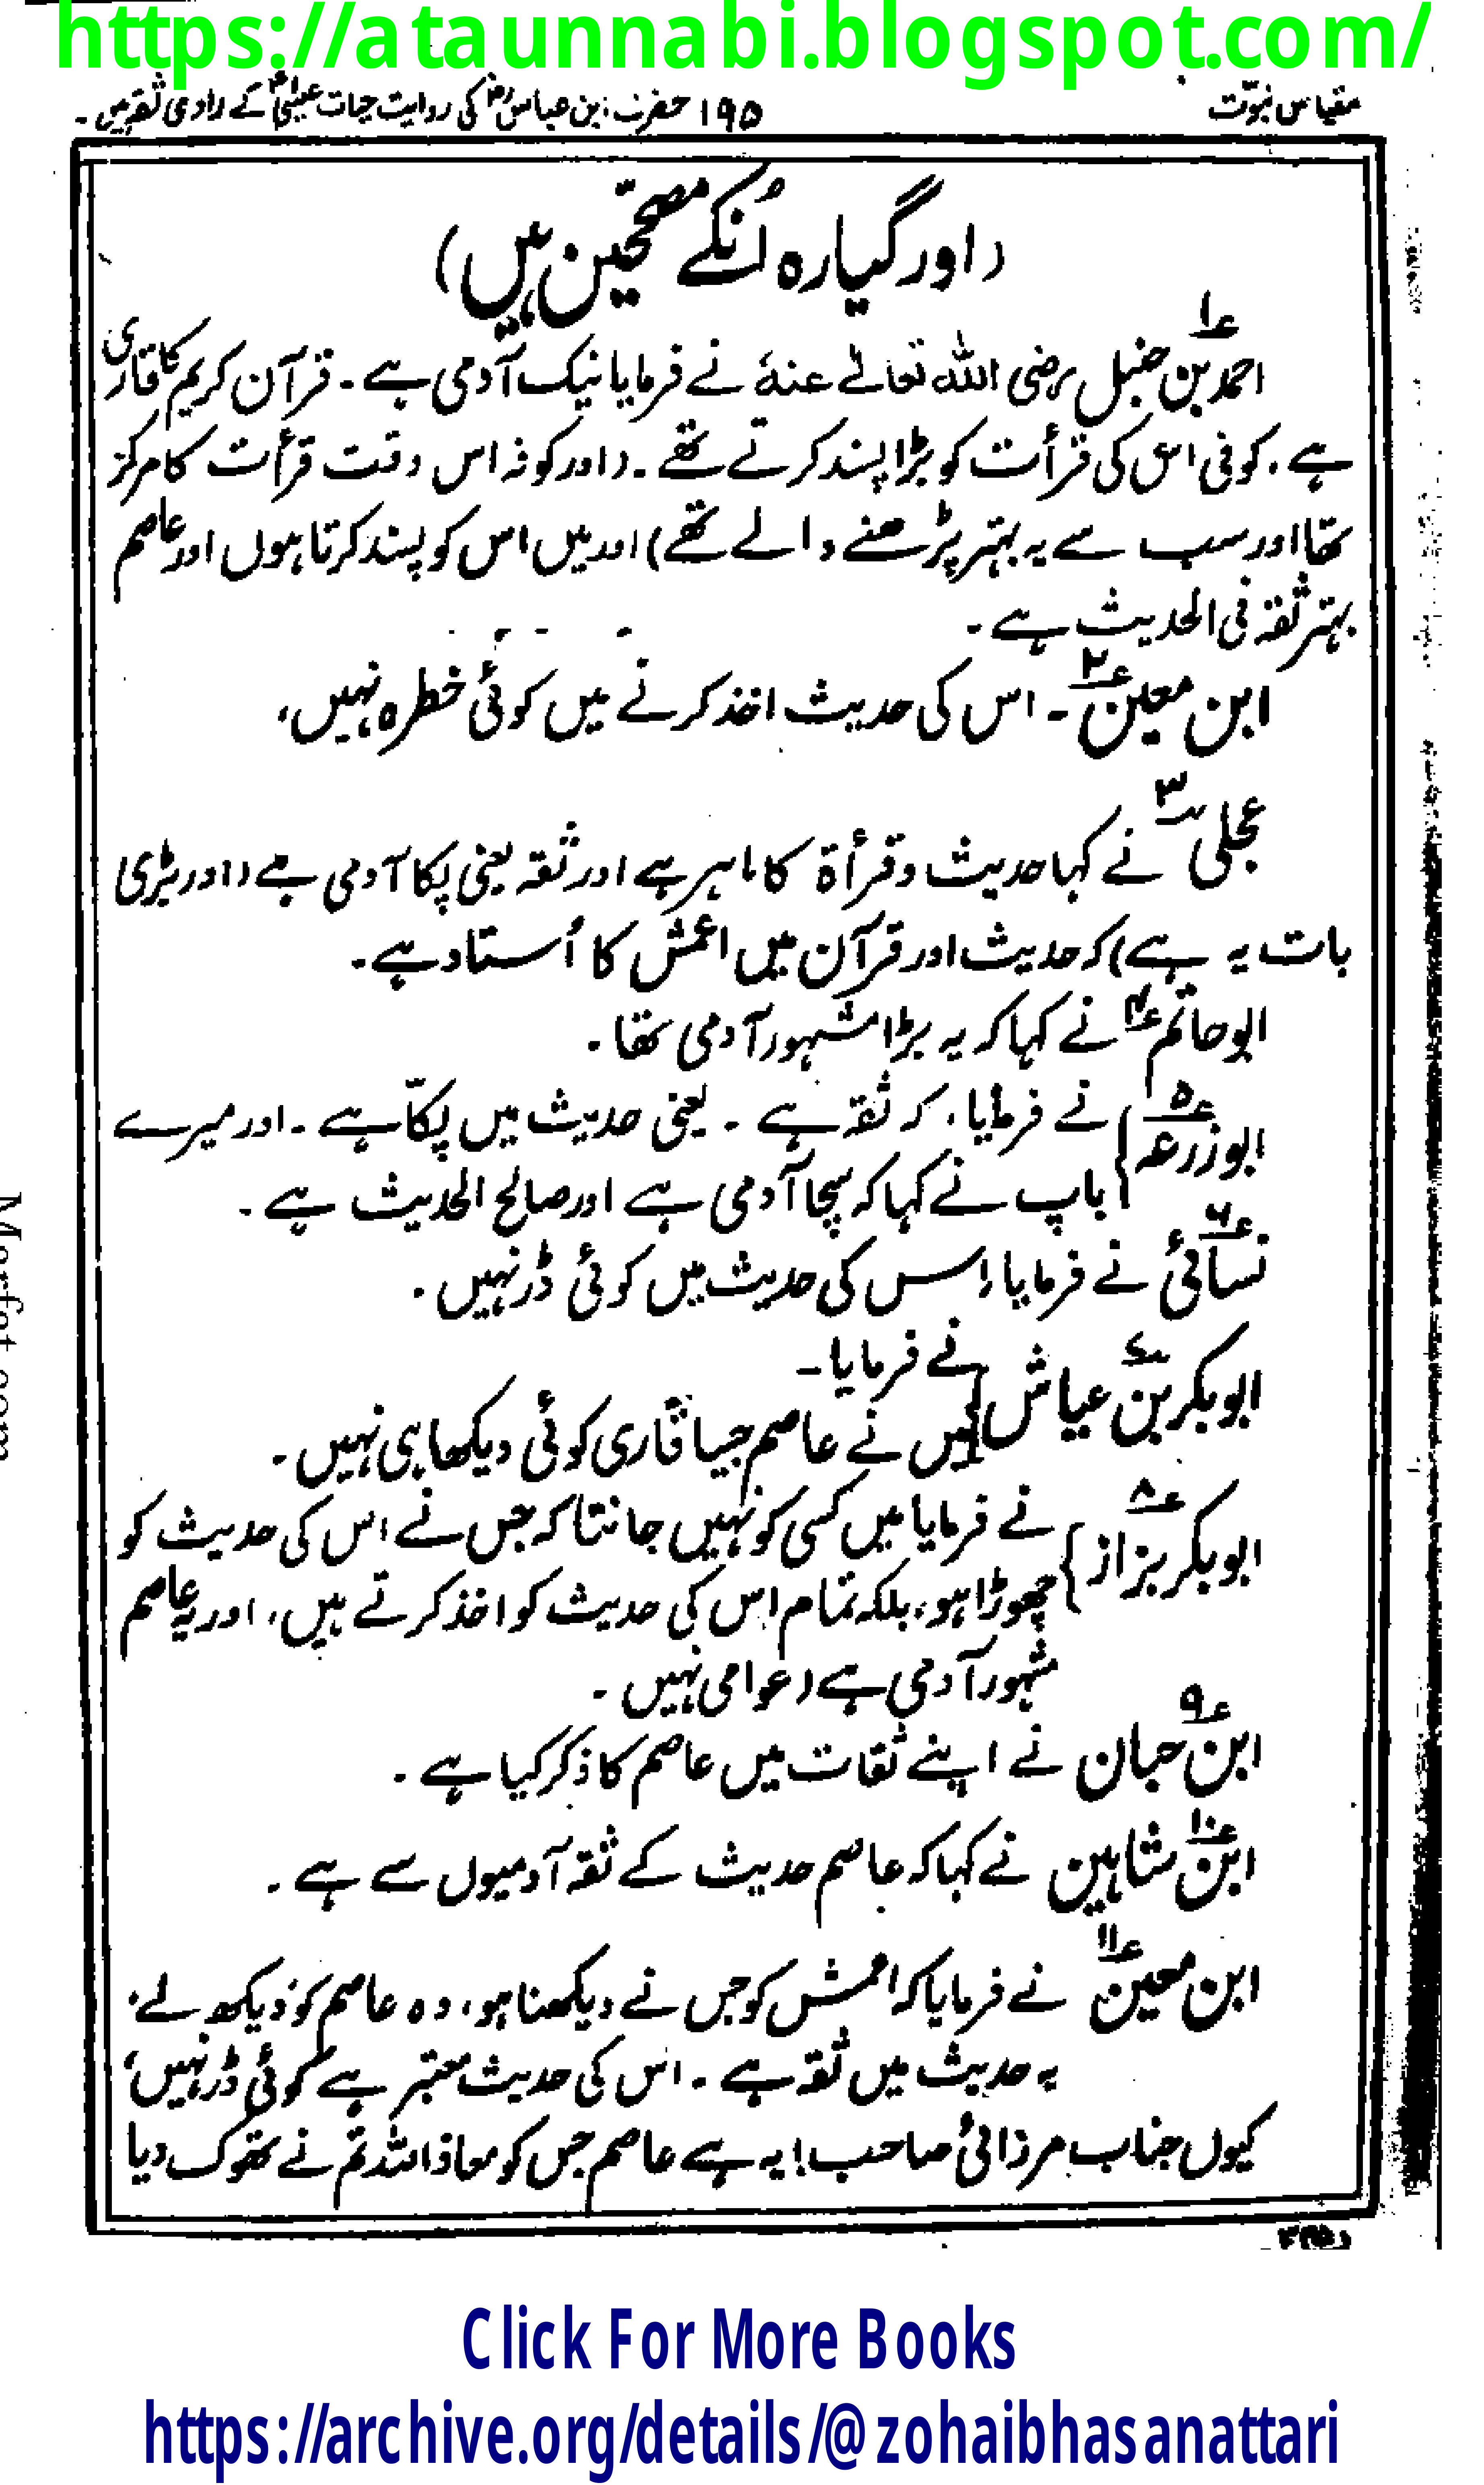 https://ataunnabi.blogspot.com/
مقیاس نبوّت ۱۹۵ حضرت ابن عباسؓ کی روایت حیات عیسیٰؑ کے راوی ثقہ ہیں۔
(اور گیارہ اُنکے مصحّحین ہیں)
احمد بن حنبل ؏۱ رضی اللہ تعالےٰ عنہٗ نے فرمایا نیک آدمی ہے۔ قرآن کریم کا قاری
ہے، کوفی اس کی قرأت کو بڑا پسند کرتے تھے۔ (اور کوفہ اس وقت قرأت کا مرکز
تھا اور سب سے یہ بہتر پڑھنے والے تھے) اور میں اس کو پسند کرتا ہوں اور عاصم
بہتر ثقہ فی الحدیث ہے۔
ابن معین ؏۲۔ اس کی حدیث اخذ کرنے میں کوئی خطرہ نہیں،
عجلی ؏۳ نے کہا حدیث و قرأۃ کا ماہر ہے اور ثقہ یعنی پکا آدمی ہے (اور بڑی
بات یہ ہے) کہ حدیث اور قرآن میں اعمش کا اُستاد ہے۔
ابو حاتم ؏۴ نے کہا کہ یہ بڑا مشہور آدمی تھا۔
ابو زرعہ ؏۵ } نے فرمایا، کہ ثقہ ہے۔ یعنی حدیث میں پکّا ہے۔ اور میرے
باپ نے کہا کہ سچا آدمی ہے اور صالح الحدیث ہے۔
نسائی ؏۶ نے فرمایا اِس کی حدیث میں کوئی ڈر نہیں۔
ابوبکر بن عیاش ؏۷ } نے فرمایا۔
میں نے عاصم جیسا قاری کوئی دیکھا ہی نہیں۔
ابوبکر بزاز ؏۸ } نے فرمایا میں کسی کو نہیں جانتا کہ جس نے اس کی حدیث کو
چھوڑا ہو، بلکہ تمام اس کی حدیث کو اخذ کرتے ہیں، اور یہ عاصم
مشہور آدمی ہے (عوامی نہیں۔
ابن حبان ؏۹ نے اپنے ثقات میں عاصم کا ذکر کیا ہے۔
ابن شاہین ؏۱۰ نے کہا کہ عاصم حدیث کے ثقہ آدمیوں سے ہے۔
ابن معین ؏۱۱ نے فرمایا کہ اعمش کو جس نے دیکھنا ہو، وہ عاصم کو دیکھ لے،
یہ حدیث میں ثقہ ہے۔ اس کی حدیث معتبر ہے کوئی ڈر نہیں،
کیوں جناب مرزائی صاحب! یہ ہے عاصم جس کو معاذ اللہ تم نے تھوک دیا
Marfat.com
Click For More Books
https://archive.org/details/@zohaibhasanattari